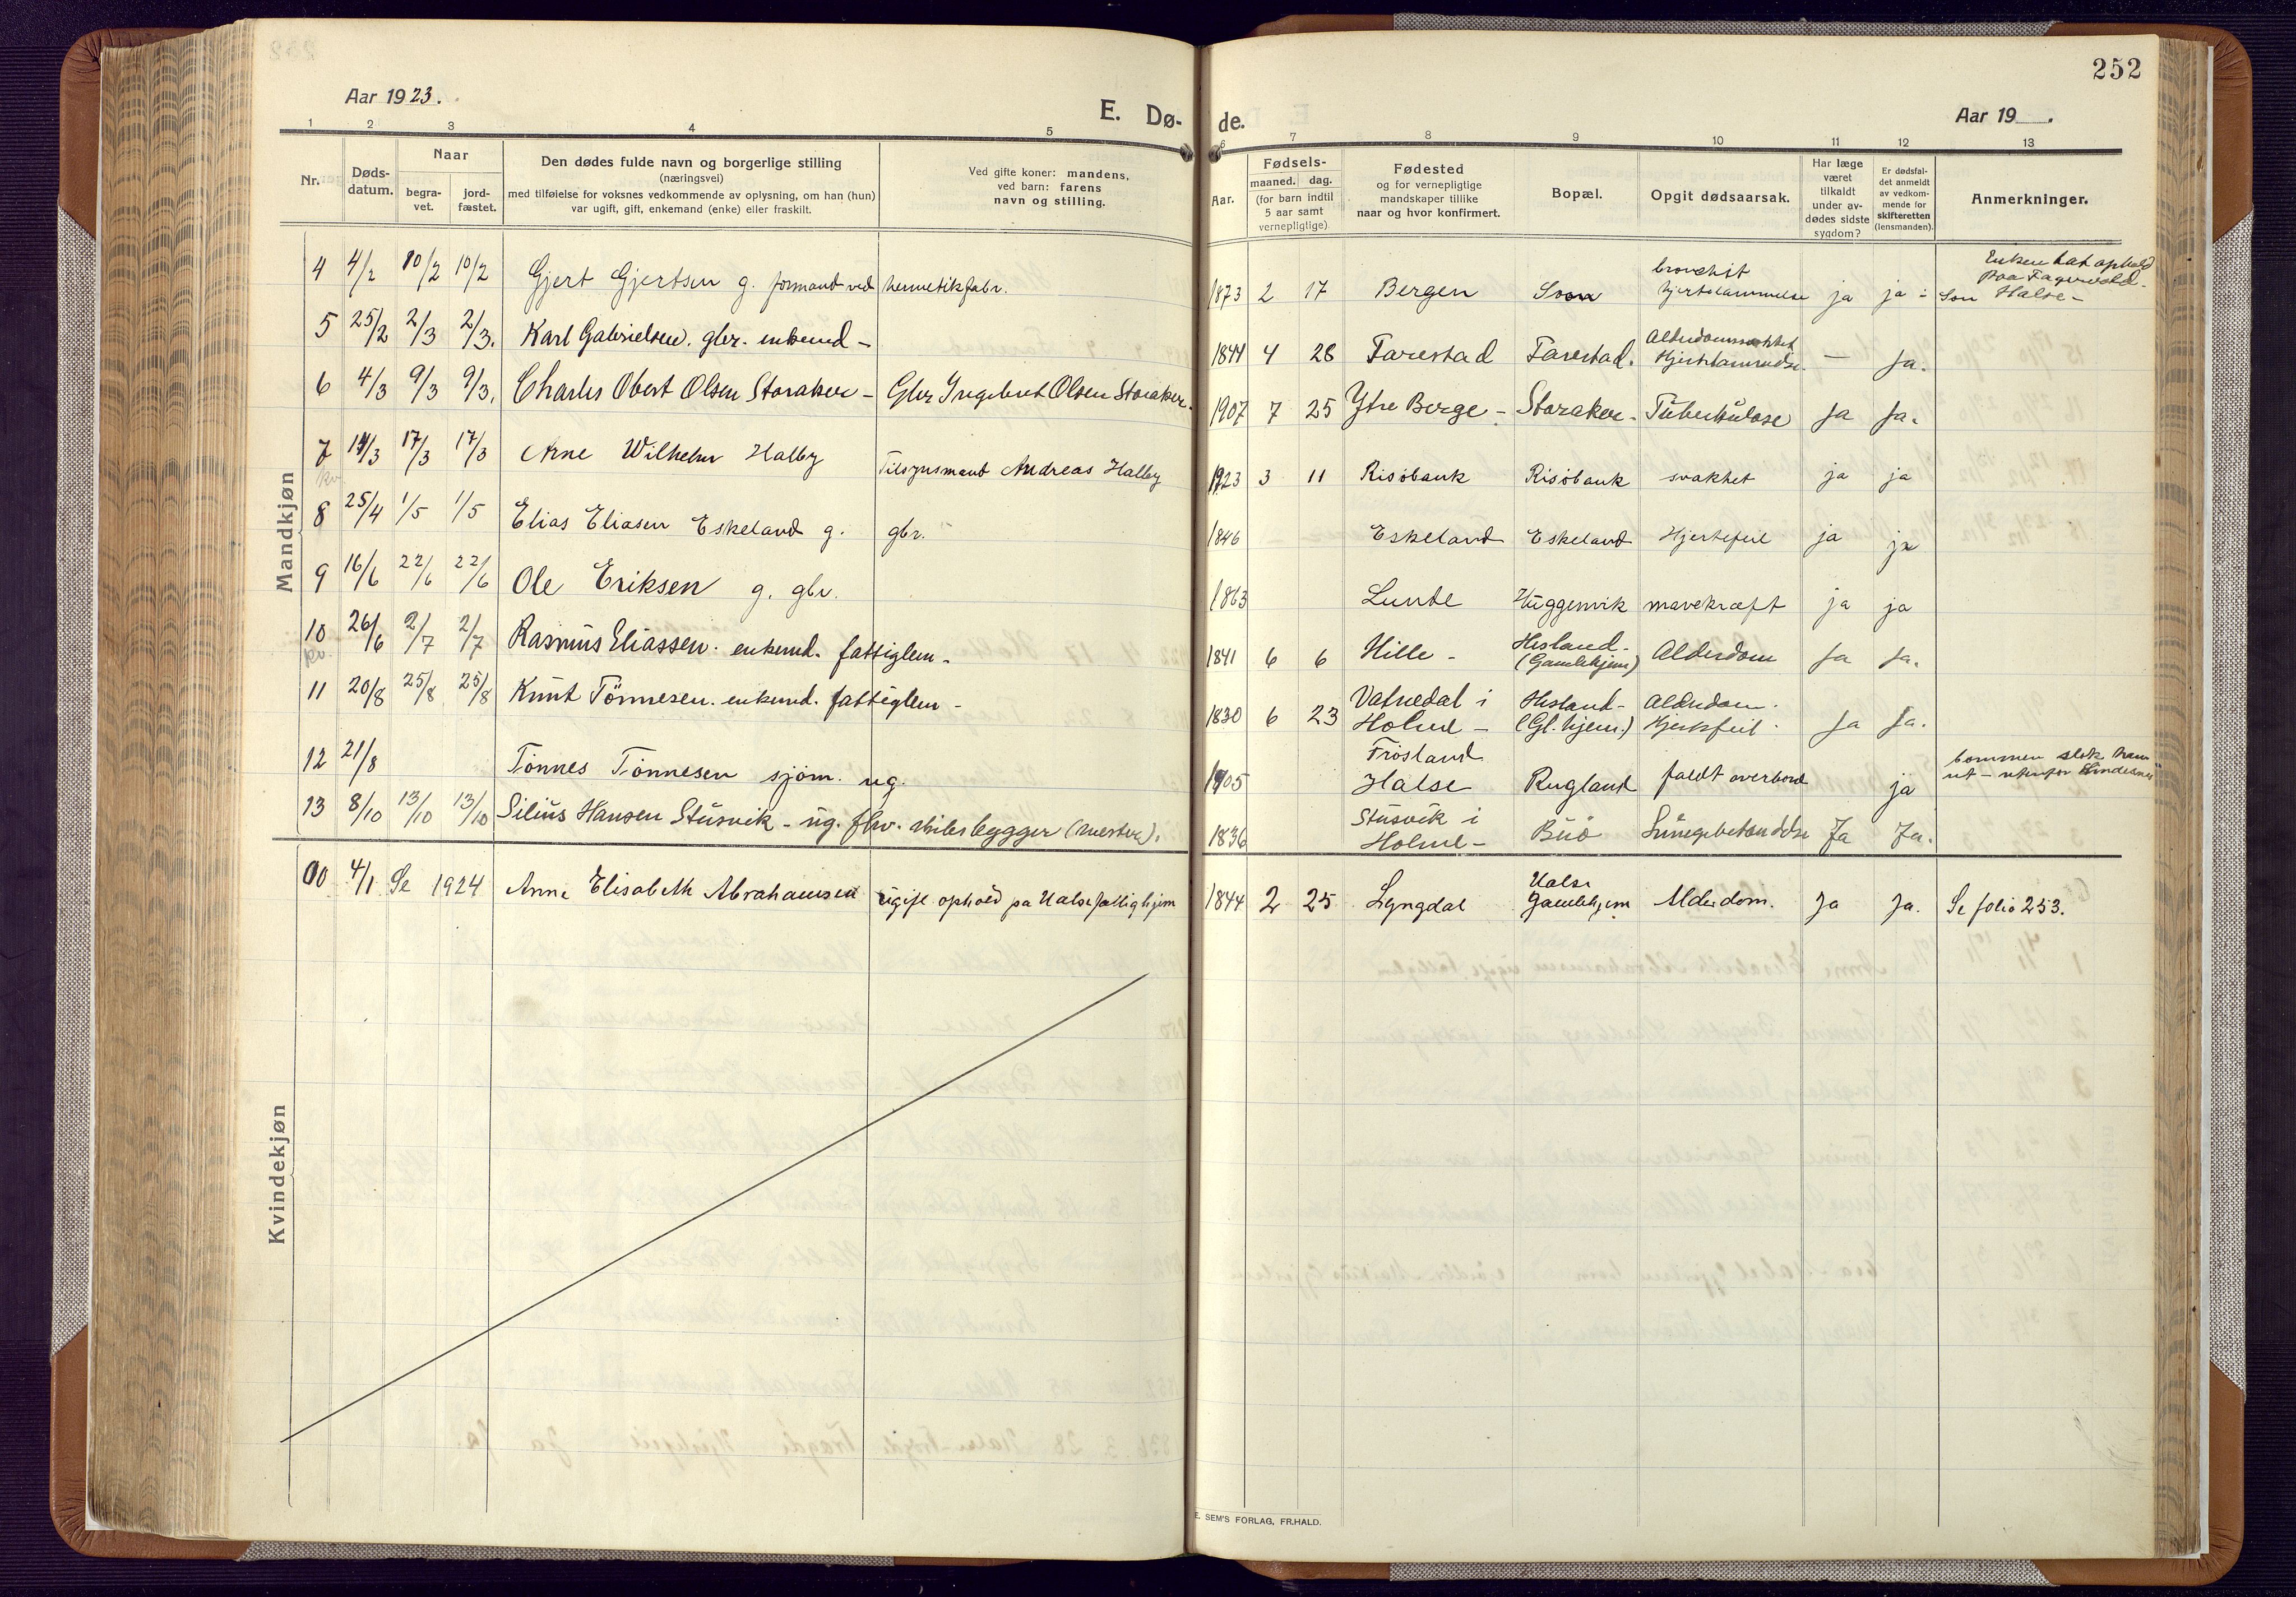 252
Aar 1923.
E. Dø-
de.
Aar 19 .
1 2 3 4 5 6 7 8 9 10 11 12 13
Nr.
Døds-
datum.
Naar
begra-
vet.
jord-
fæstet.
Den dødes fulde navn og borgerlige stilling
(næringsvei)
med tilføielse for voksnes vedkommende av oplysning, om han (hun)
var ugift, gift, enkemand (enke) eller fraskilt.
Ved gifte koner: mandens,
ved barn: farens
navn og stilling.
Aar.
Fødsels-
maaned. dag.
(for barn indtil
5 aar samt
vernepligtige)
Fødested
og for vernepligtige
mandskaper tillike
naar og hvor konfirmert.
Bopæl.
Opgit dødsaarsak.
Har læge
været
tilkaldt
under av-
dødes sidste
sygdom?
Er dødsfal-
det anmeldt
av vedkom-
mende for
skifteretten
(lensmanden).
Anmerkninger.
Mandkjøn
4 4/2 10/2 10/2 Gjert Gjertsen g. formand ved hermetikfabr. 1873 2 17 Bergen bronchit
hjertelammelse ja ja Enken hat ophold
paa
Halse
5 25/2 2/3 2/3. Karl Gabrielsen. gbr. enkemd - 1844 4 28 Farestad Farestad. Alderdomssvakhet
Hjertelammelse. - Ja.
6 4/3 9/3 9/3. Charles Obert Olsen Storaker - Gbr Ingebret Olsen Storaker. 1907 7 25 Ytre Berge - Storaker - Tuberkulose Ja Ja.
7 14/3 17/3 17/3 Arne Wilhelm Halby Tilsynsmand Andreas Halby 1923 3 11 Risöbank Risöbank svakhet ja ja
kv.
8 25/4 1/5 1/5 Elias Eliasen Eskeland g. gbr. 1846 Eskeland Eskeland Hjertefeil ja ja
9 16/6 22/6 22/6 Ole Eriksen g. gbr. 1863 Lunde Huggenvik mavekræft ja ja
10 26/6 2/7 2/7 Rasmus Eliassen. enkemd. fattiglem - 1841 6 6 Hille - Hesland -
(Gamlehjem) Alderdom Ja Ja.
kv.
11 20/8 25/8 25/8 Knut Tönnesen. enkemd. fattiglem - 1830 6 23 Vatnedal i
Holme - Hesland -
(Gl. hjem.) Alderdom.
Hjertefeil. Ja Ja.
12 21/8 Tönnes Tönnesen sjöm. ug. 1905 Frösland
Halse Rugland faldt overbord ja bommen slok ham
ut - utenfor Lindesnes
13 8/10 13/10 13/10 Silius Hansen Stusvik - ug. fhv. skibsbygger (mester). 1836 Stusvik i
Holme - Büö Lungebetændelse Ja Ja.
Kvindekjøn
00 4/1 Se 1924 Anne Elisabeth Abrahamsen ugift ophold pa Halse fattighjem 1844 2 25 Lyngdal Halse
Gamlehjem Alderdom. Ja Ja. Se folio 253.
E. SEM'S FORLAG, FR.HALD.